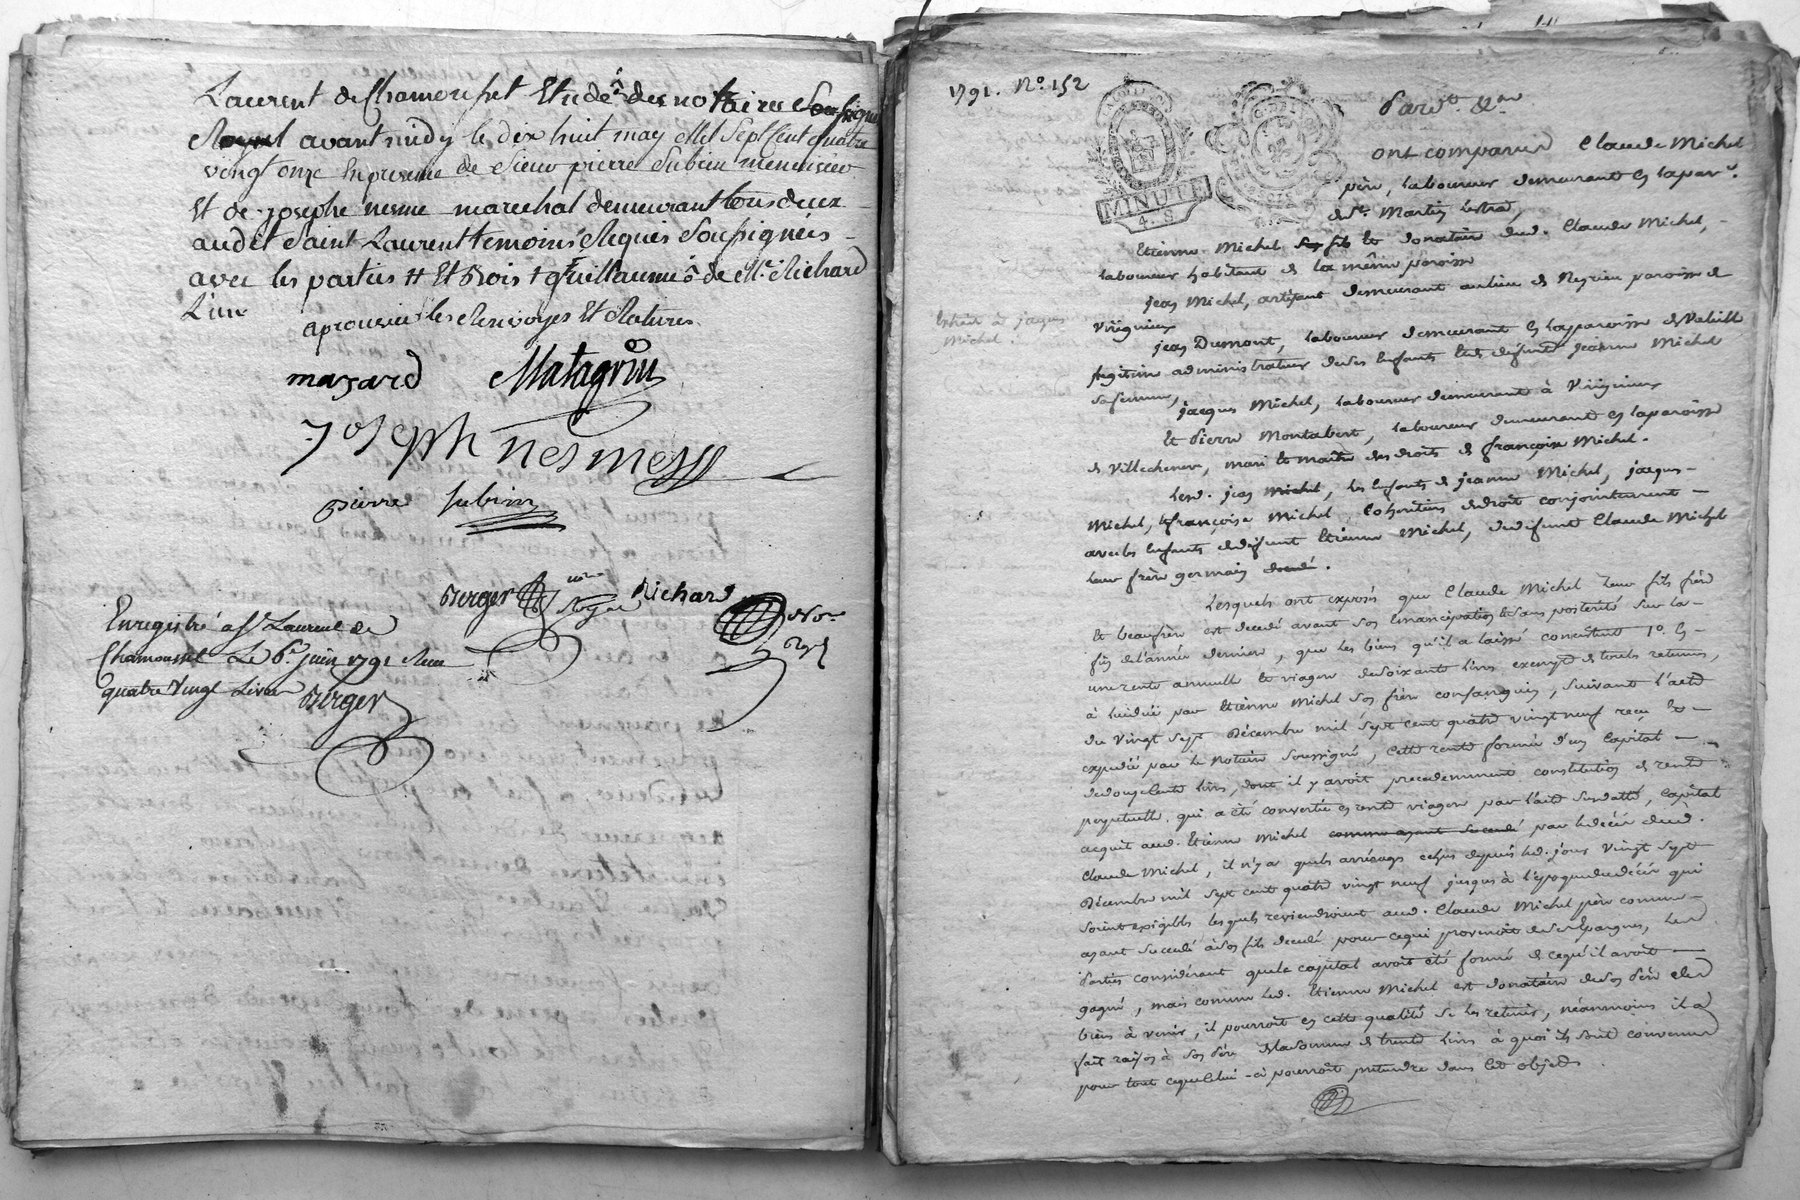 Laurent de Chamousset Etude des notaires Soussignés
Royal avant midy le dix huit may Mil Sept Cent quatre
vingt onze En presence de Sieur pierre Subrin menuisier
Et de joseph nesme marechal demeurant tous deux
audit Saint Laurent temoins Requis Soussignés
avec les parties Et trois Guillaumé de Me Richard
L'un
aprouvés les Renvoyes Et Ratures
mazard Matagrin
joseph nesme
pierre subrin
Berger nore Royal Richard Nore
Enregistré a St Laurent de
Chamousset Le 6e juin 1791 Reçu
quatre Vingt Livres Berger
1791. No 152
Pardt &a
MINUTE
4. S
ont comparus Claude Michel
père, laboureur demeurant en la parse
de St Martin Lestra,
Etienne Michel son fils et donataire dud. Claude Michel,
laboureur habitant de la même paroisse
jean Michel, artisant demeurant au lieu de Neyrieu paroisse de
Virigneux
Extrait à jacques
Michel.
jean Dumont, laboureur demeurant en la paroisse de
légitime administrateur de ses Enfants et de defunte jeanne Michel
sa femme,
jacques Michel, laboureur demeurant à Virigneux
Et Pierre Montabert, laboureur demeurant en la paroisse
de Villecheneve, mari et maître des droits de françoise Michel.
Led. jean Michel, les Enfants de jeanne Michel, jacques
Michel, et françoise Michel, Cohéritiers de droit conjointement
avec les Enfants de defunt Etienne Michel, dud. defunt Claude Michel
leur frère germain
Lesquels ont exposés que Claude Michel leur fils frère
et beaufrère est decedé avant son Emancipation et sans posterité Sur la
fin de l'année derniere, que les biens qu'il a laissé consistent 1o. En
une rente annuelle et viagere de soixante Livres exempte de toutes retenues,
à lui düe par Etienne Michel son frère consanguin, suivant l'acte
du Vingt Sept Décembre mil Sept cent quatre vingt neuf reçu et
expedié par le Notaire Soussigné, cette rente formée d'un Capital
de douze cents livres, dont il y avoit precedemment constitution de rente
perpetuelle, qui a été convertie en rente viagere par l'acte Susdatté, capital
acquit aud. Etienne Michel comme ayant succedé par le décès dud.
Claude Michel, il n'y a que les arrérages echus depuis led. jour Vingt Sept
Décembre mil Sept cent quatre vingt neuf jusques à l'époque du décès qui
soient exigibles lesquels reviendroient aud. Claude Michel père comme
ayant succedé à son fils decedé pour ce qui provenoit de ses Epargnes, les
Parties considérant que le capital avoit été formé de ce qu'il avoit
gagné, mais comme led. Etienne Michel est donataire de son Père des
biens à venir, il pourroit en cette qualité se les retenir, néanmoins il a
fait raison à son Père de la somme de trente Livres à quoi ils sont convenus
pour tout ce que celui-ci pourroit pretendre dans cet objet.